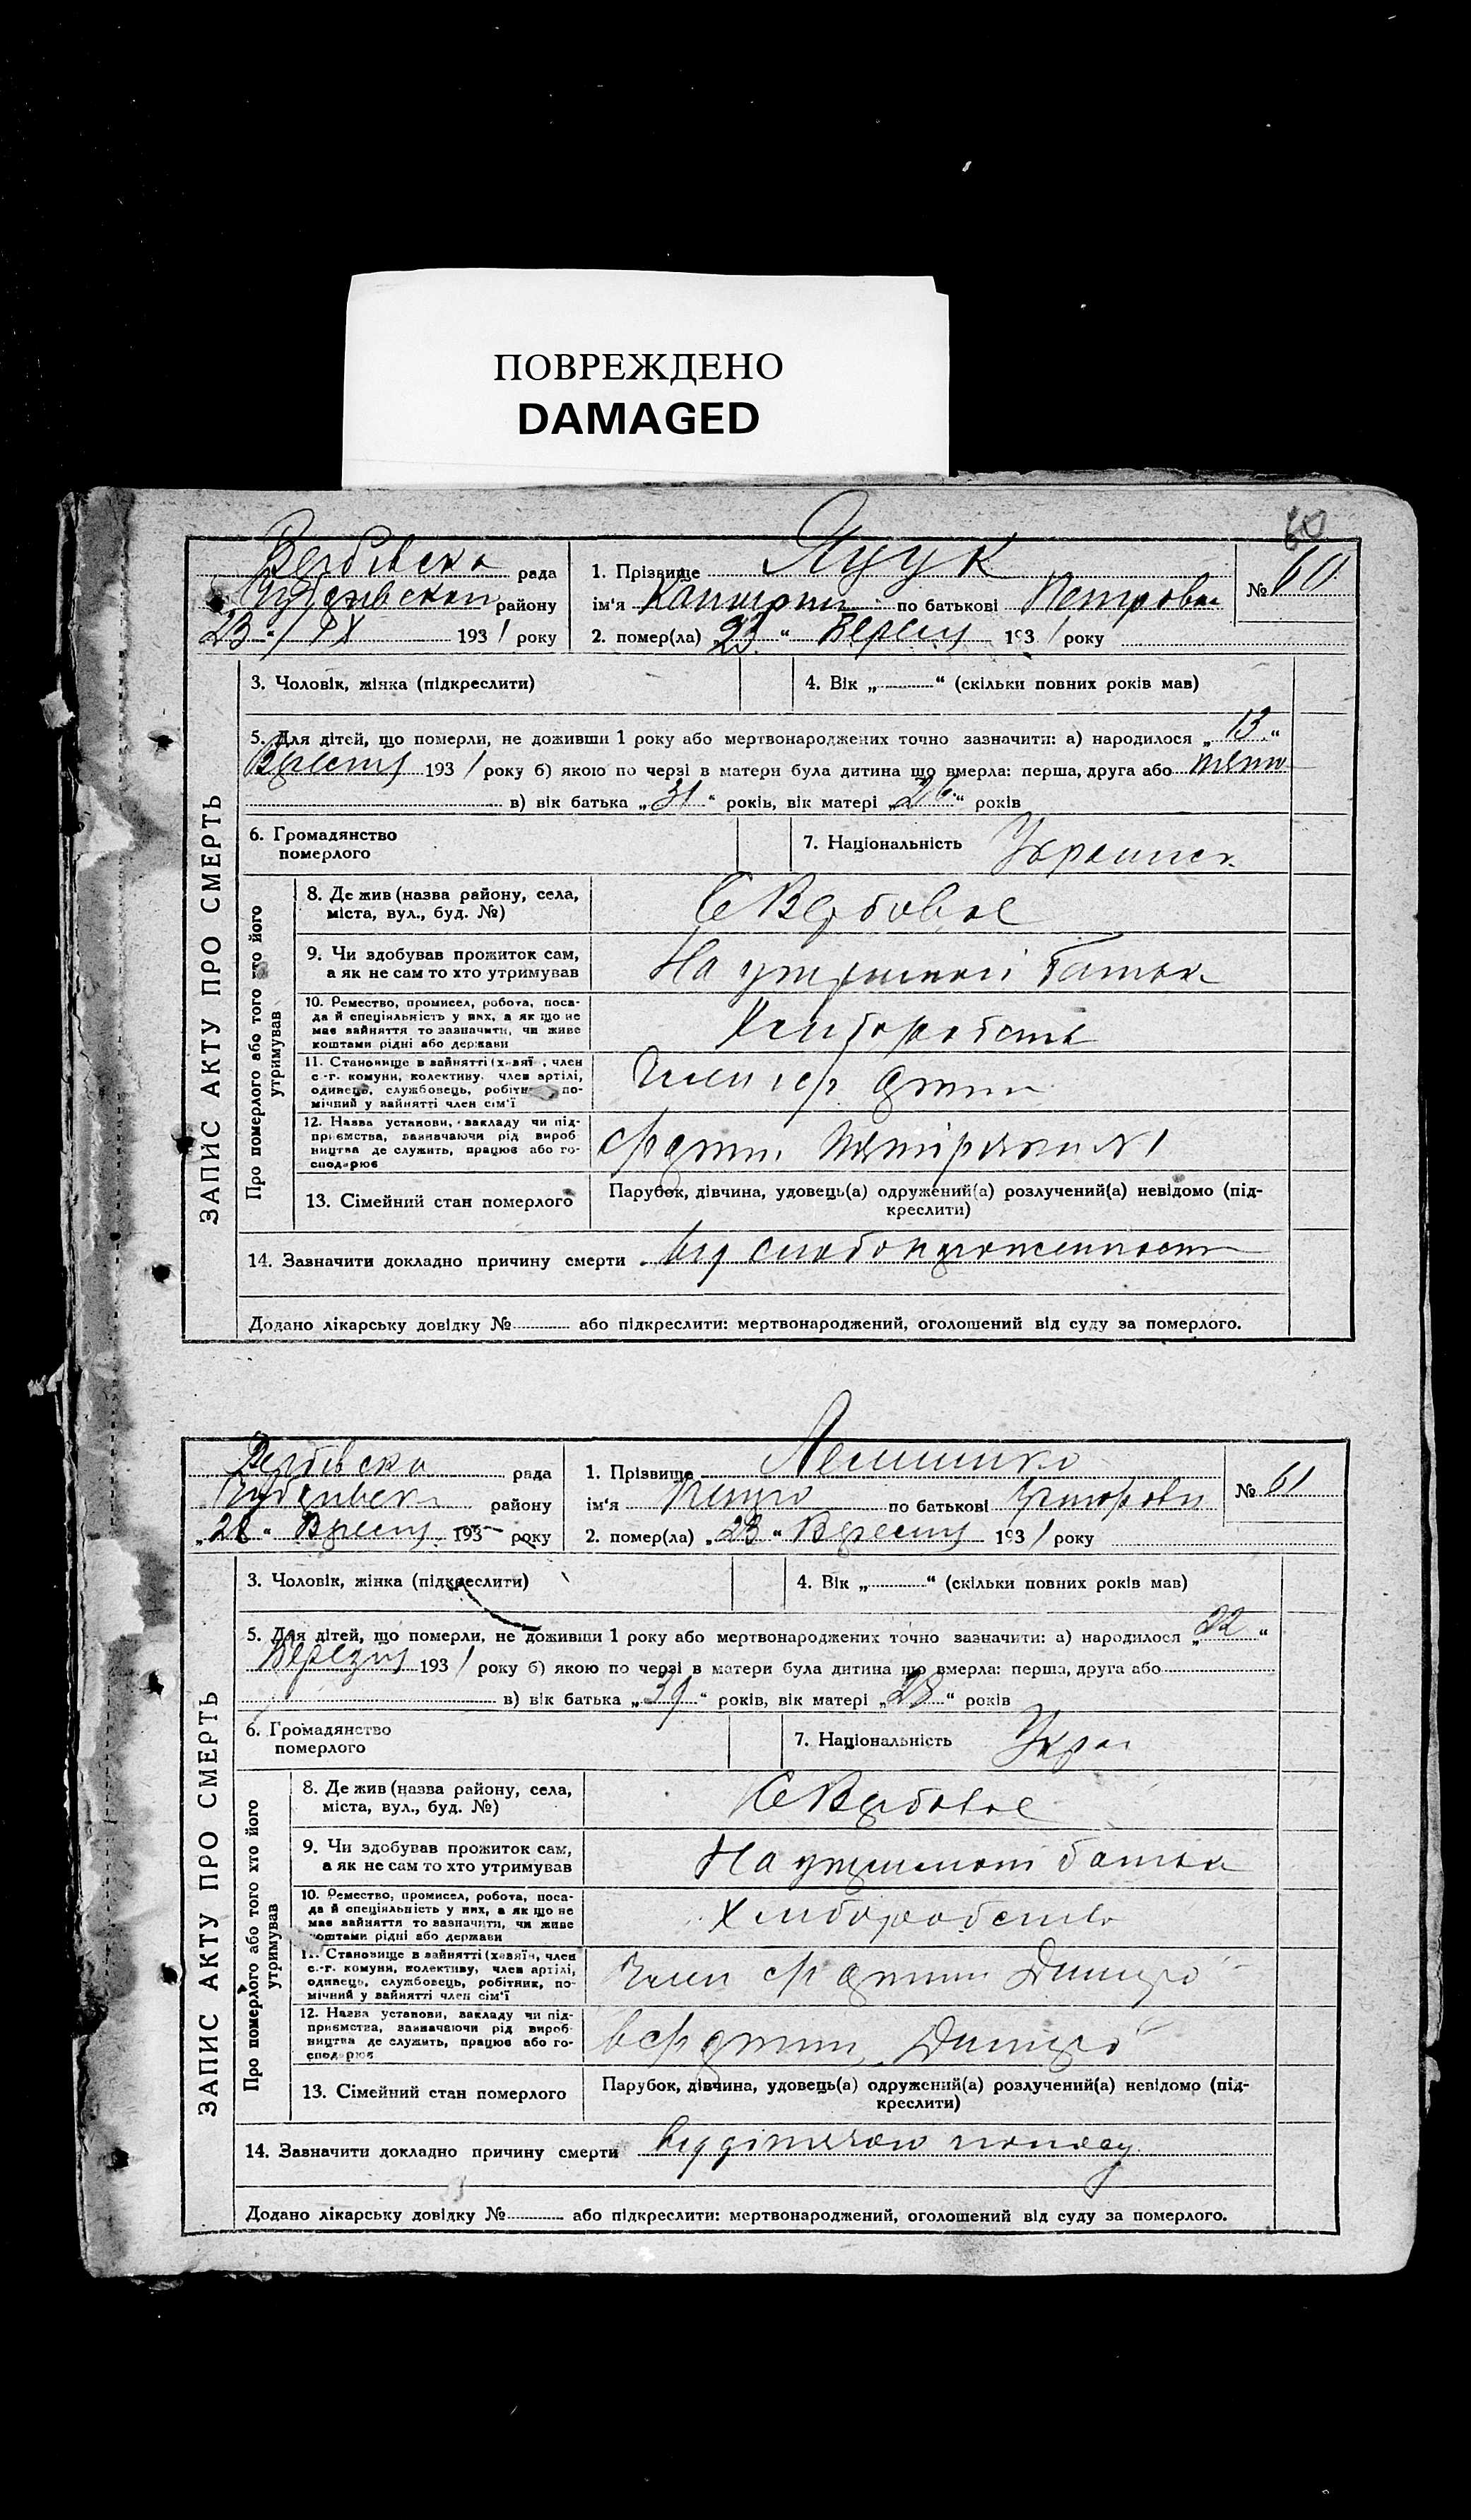 ПОВРЕЖДЕНО
DAMAGED
60
Вербівска рада
району
23 / IX 1931 року
1. Прізвище Яцук
ім'я по батькові Петровна
2. помер(ла) „23“ Вересня 1931 року
№ 60
ЗАПИС АКТУ ПРО СМЕРТЬ
3. Чоловік, жінка (підкреслити)
4. Вік „ “ (скільки повних років мав)
5. Для дітей, що померли, не доживши 1 року або мертвонароджених точно зазначити: а) народилося „13“
Вересня 1931 року б) якою по черзі в матери була дитина що вмерла: перша, друга або
в) вік батька „31“ років, вік матері „26“ років
6. Громадянство
померлого
7. Національність
Про померлого або того хто його
утримував
8. Де жив (назва району, села,
міста, вул., буд. №)
С Вербовое
9. Чи здобував прожиток сам,
а як не сам то хто утримував
На батька
10. Ремество, промисел, робота, поса-
да й спеціяльність у них, а як що не
має зайняття то зазначити, чи живе
коштами рідні або держави
Хлиборобство
11. Становище в зайнятті (хазяїн, член
с.-г. комуни, колективу, член артілі,
одинець, службовець, робітник, по-
мічний у зайнятті член сім'ї
Член
12. Назва установи, закладу чи під-
приємства, зазначаючи рід вироб-
ництва де служить, працює або го-
сподарює
№ 1
13. Сімейний стан померлого
Парубок, дівчина, удовець(а) одружений(а) розлучений(а) невідомо (під-
креслити)
14. Зазначити докладно причину смерти від
Додано лікарську довідку № або підкреслити: мертвонароджений, оголошений від суду за померлого.
Вербівска рада
району
„28“ Вересня 193 року
1. Прізвище
ім'я по батькові
2. помер(ла) „23“ Вересня 1931 року
№ 61
ЗАПИС АКТУ ПРО СМЕРТЬ
3. Чоловік, жінка (підкреслити)
4. Вік „ “ (скільки повних років мав)
5. Для дітей, що померли, не доживши 1 року або мертвонароджених точно зазначити: а) народилося „22“
1931 року б) якою по черзі в матери була дитина що вмерла: перша, друга або
в) вік батька „39“ років, вік матері „28“ років
6. Громадянство
померлого
7. Національність Укра
Про померлого або того хто його
утримував
8. Де жив (назва району, села,
міста, вул., буд. №)
С Вербовое
9. Чи здобував прожиток сам,
а як не сам то хто утримував
На батька
10. Ремество, промисел, робота, поса-
да й спеціяльність у них, а як що не
має зайняття то зазначити, чи живе
коштами рідні або держави
Хлиборобство
11. Становище в зайнятті (хазяїн, член
с.-г. комуни, колективу, член артілі,
одинець, службовець, робітник, по-
мічний у зайнятті член сім'ї
Член
12. Назва установи, закладу чи під-
приємства, зазначаючи рід вироб-
ництва де служить, працює або го-
сподарює
13. Сімейний стан померлого
Парубок, дівчина, удовець(а) одружений(а) розлучений(а) невідомо (під-
креслити)
14. Зазначити докладно причину смерти
Додано лікарську довідку № або підкреслити: мертвонароджений, оголошений від суду за померлого.